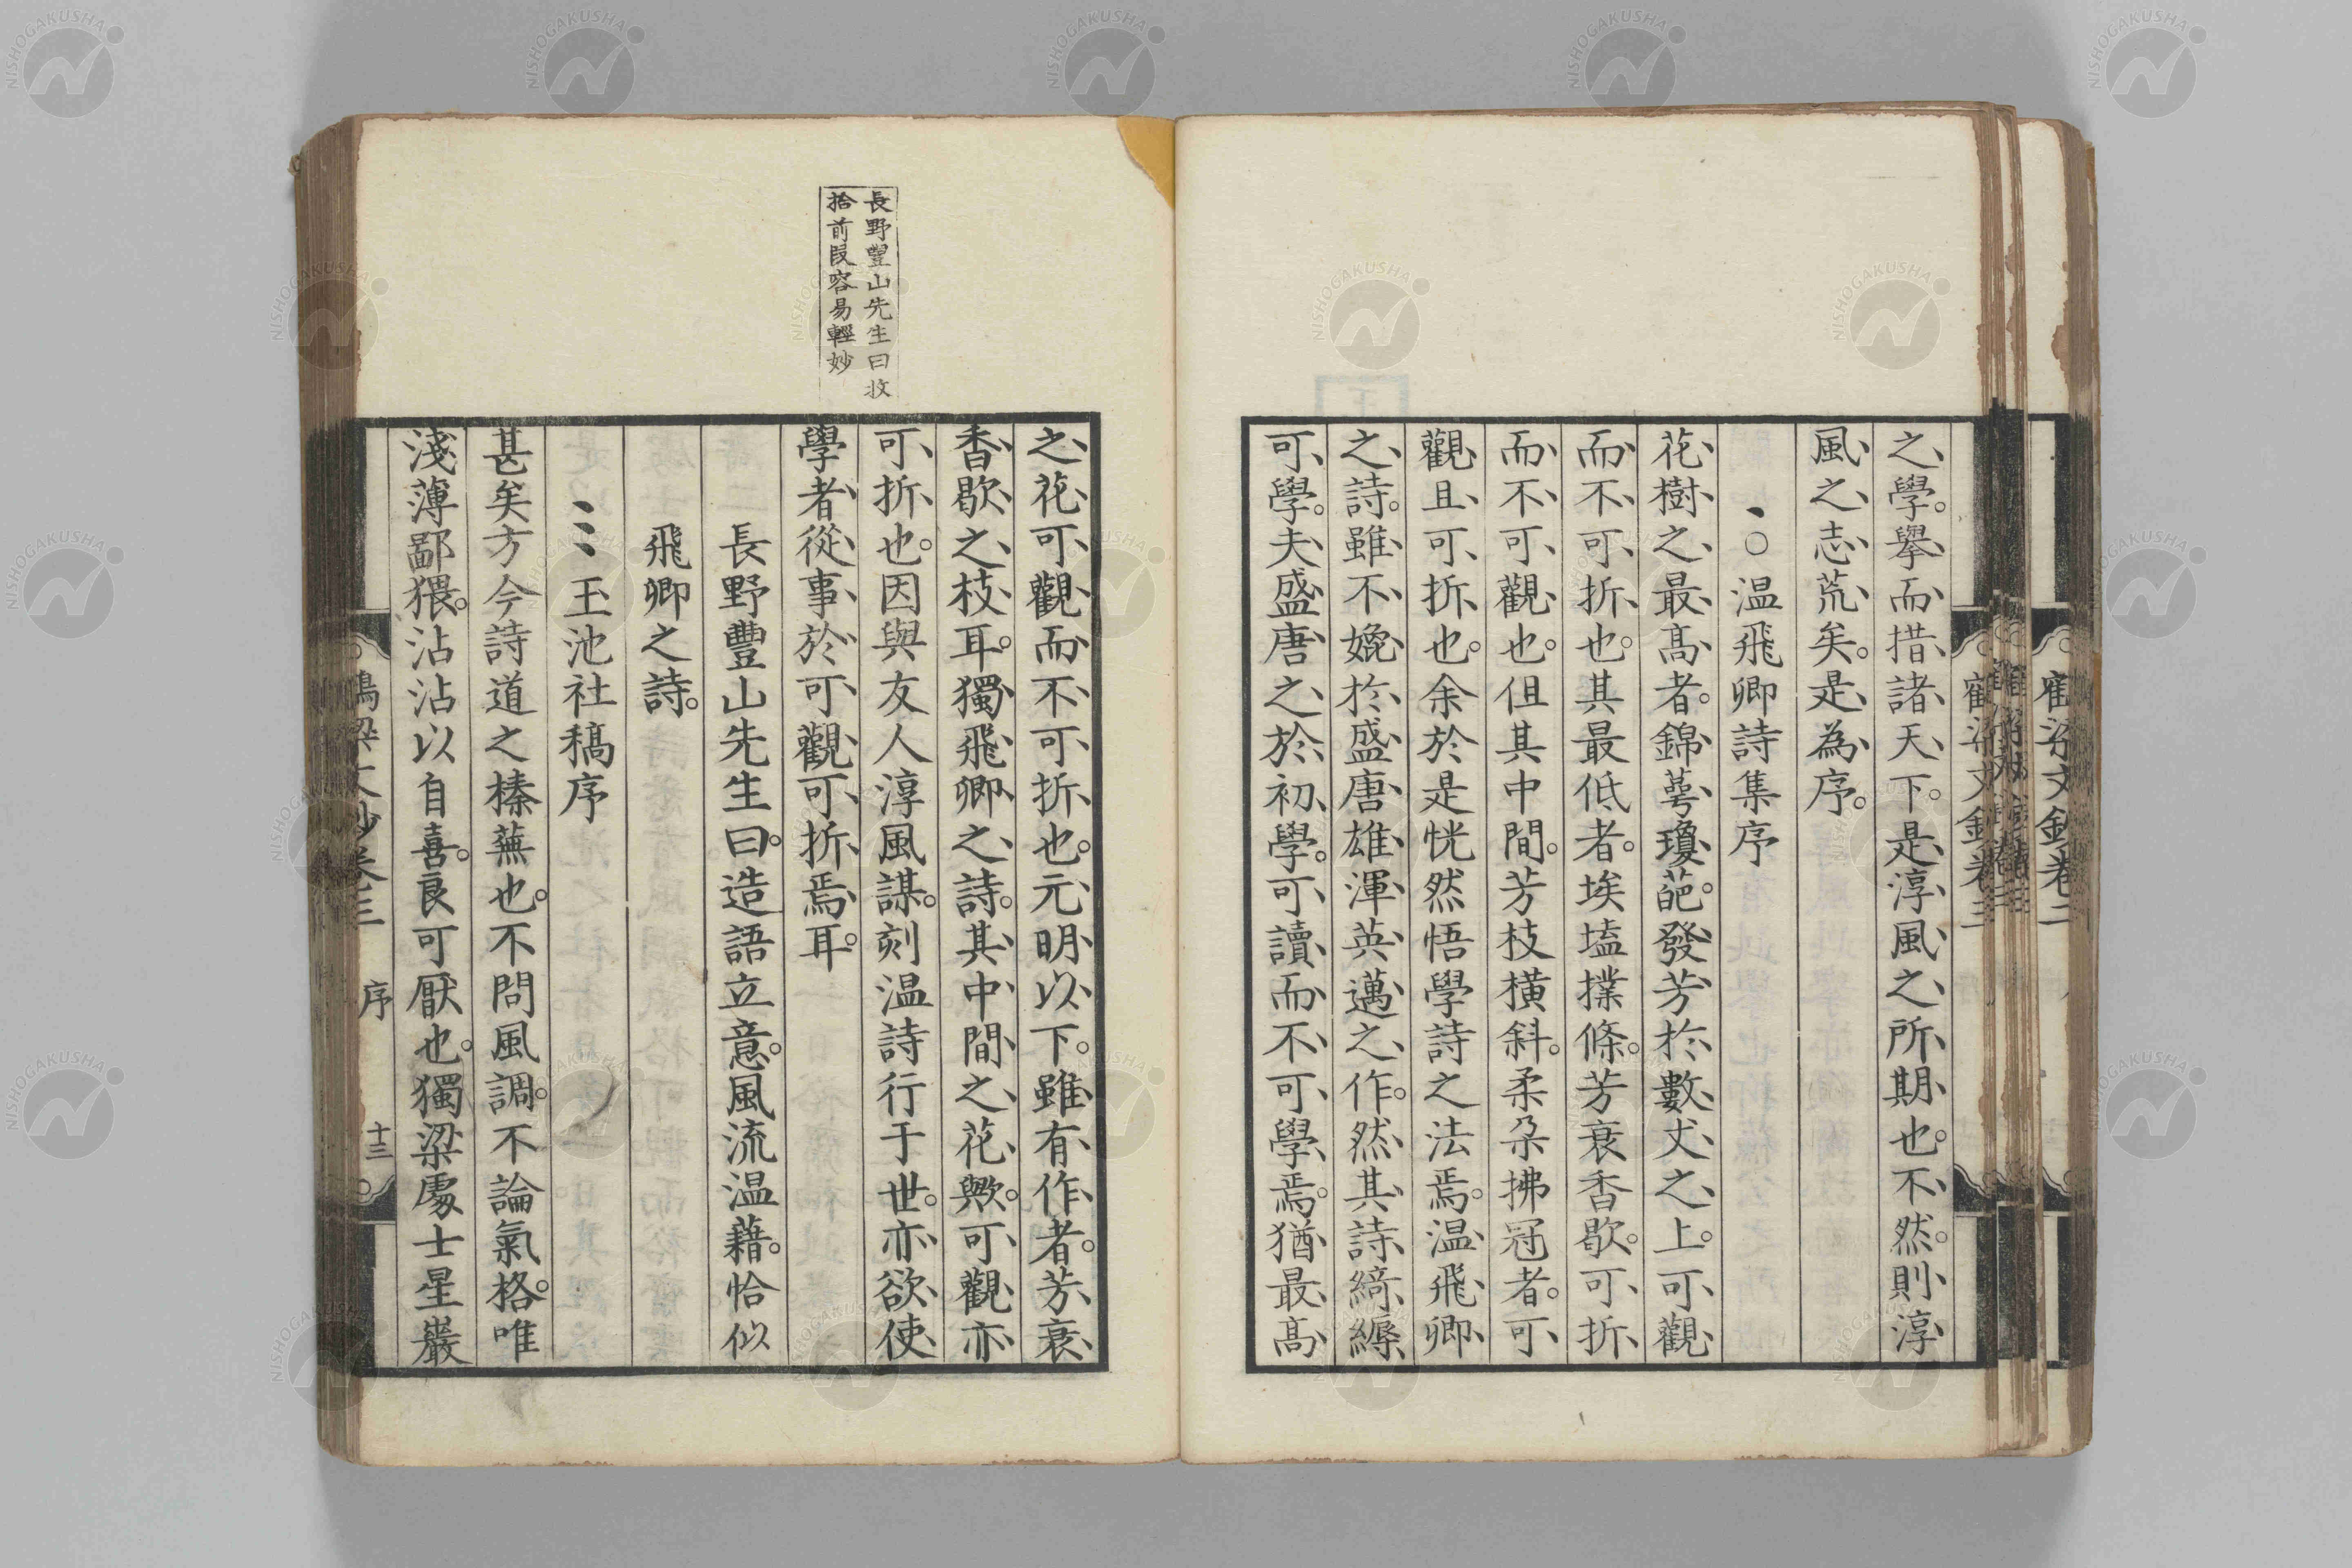 之學。擧而措諸天下。是淳風之所期也。不然。則淳
風之志荒矣。是為序。
、○温飛卿詩集序
花樹之最高者。錦萼瓊葩。發芳於數丈之上。可觀
而不可折也。其最低者。埃壒撲條。芳衰香歇。可折
而不可觀也。但其中間。芳枝橫斜。柔朶拂冠者。可
觀且可折也。余於是恍然悟學詩之法焉。温飛卿
之詩。雖不娩於盛唐雄渾英邁之作。然其詩綺縟
可學。夫盛唐之於初學。可讀而不可學焉。猶最高
之花可觀而不可折也。元明以下。雖有作者。芳衰
香歇之枝耳。獨飛卿之詩。其中間之花歟。可觀亦
可折也。因與友人淳風謀。刻温詩行于世。亦欲使
學者從事於可觀可折焉耳。
長野豐山先生曰收
拾前段容易輕妙
長野豐山先生曰。造語立意。風流温藉。恰似
飛卿之詩。
、、、玉池社稿序
甚矣方今詩道之榛蕪也。不問風調。不論氣格。唯
淺薄鄙猥。沾沾以自喜。良可厭也。獨梁處士星巖
鳴梁文鈔卷三 序 十三